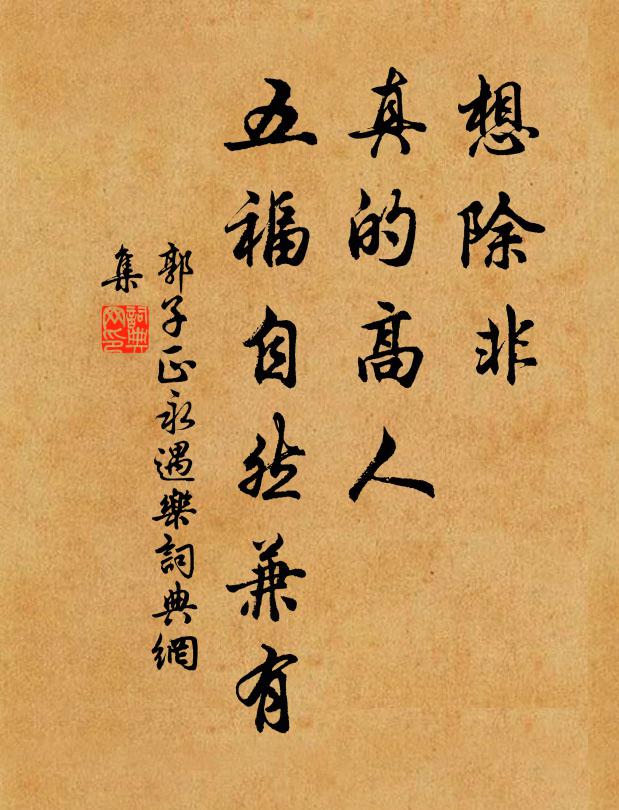 想除非
真的高人
五福自然兼有
郭子正永遇樂詞典網
集
詞典
网印